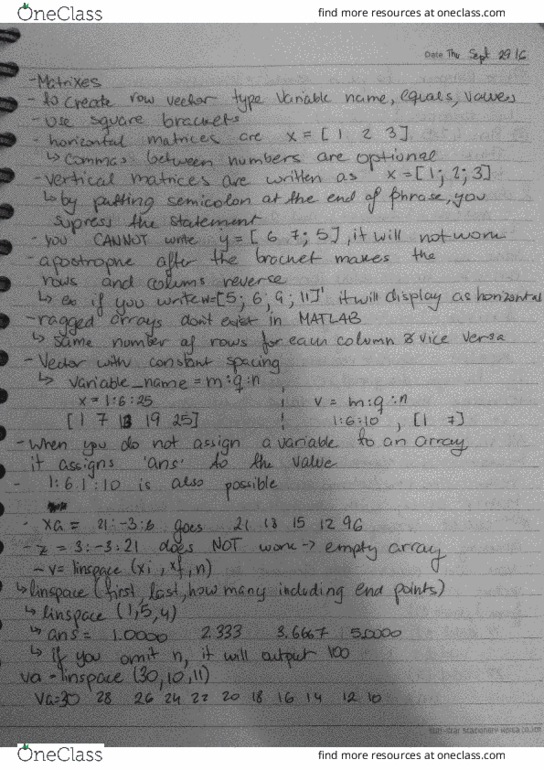 OneClass
find more resources at oneclass.com
Date Thu Sept 29/16
-Matrixes
- to create row vector type variable name, equals, values
- use square brackets
- horizontal matrices are x = [1 2 3]
↳ commas between numbers are optional
- vertical matrices are written as x = [1; 2; 3]
↳ by putting semicolon at the end of phrase, you
supress the statement
- you CANNOT write y = [6 7; 5], it will not work
- apostrophe after the bracket makes the
rows and colums reverse
↳ ex if you write w=[5; 6; 9; 11]' it will display as horizontal
- ragged arrays don't exist in MATLAB
↳ same number of rows for each column & vice versa
- Vector with constant spacing
↳ variable_name = m:q:n
x = 1:6:25 v = m:q:n
[1 7 13 19 25] 1:6:10, [1 7]
- when you do not assign a variable to an array
it assigns 'ans' to the value
- 1:6.1:10 is also possible
- xa = 21:-3:6 goes 21 18 15 12 9 6
- z = 3:-3:21 does NOT work → empty array
- v= linspace (xi, xf, n)
↳ linspace (first, last, how many including end points)
↳ linspace (1,5,4)
↳ ans = 1.0000 2.333 3.6667 5.0000
↳ If you omit n, it will output 100
va = linspace (30,10,11)
va=30 28 26 24 22 20 18 16 14 12 10
OneClass
find more resources at oneclass.com